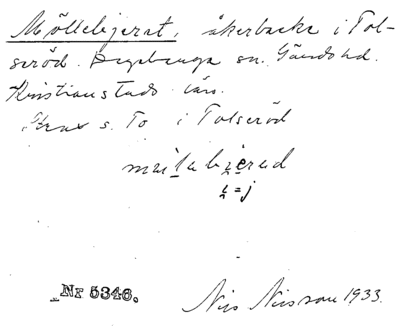 Möllebjerat, åkerbacke i Tol-
seröd. sn. Gärds hd.
Kristianstads län.
s. To i Tolseröd
möilabjerad
i=j
Nr 5346.
Nils Nilsson 1933.